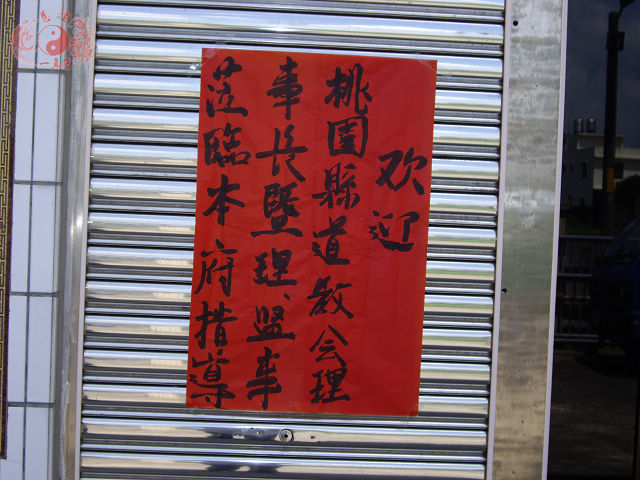 欢迎
桃園縣道教会理
事長暨理、监事
蒞臨本府措導